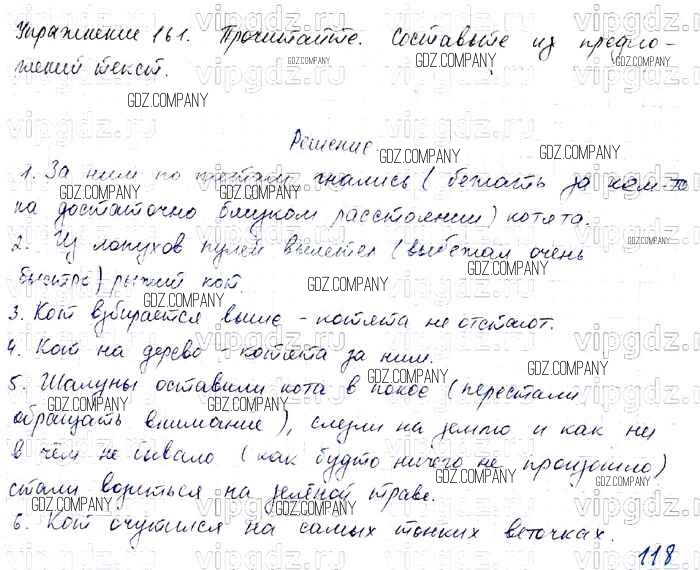 Упражнение 161. Прочитайте. Составьте из предло-
жений текст.
Решение
1. За ним по пятам гнались (бежать за кем-то
на достаточно близком расстоянии) котята.
2. Из лопухов пулей вылетел (выбежал очень
быстро) рыжий кот.
3. Кот взбирается выше - котята не отстают.
4. Кот на дерево - котята за ним.
5. Шалуны оставили кота в покое (перестали
обращать внимание), слезли на землю и как ни
в чём не бывало (как будто ничего не произошло)
стали возиться на зелёной траве.
6. Кот очутился на самых тонких веточках.
118